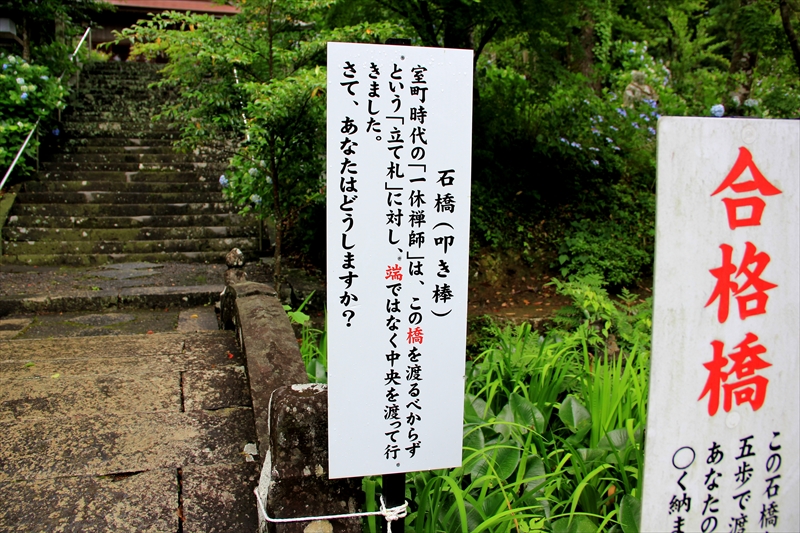 石橋(叩き棒)
室町時代の「一休禅師」は、この橋を渡るべからず
という「立て札」に対し、端ではなく中央を渡って行
きました。
さて、あなたはどうしますか?
合格橋
この石橋
五歩で渡
あなたの
〇く納ま